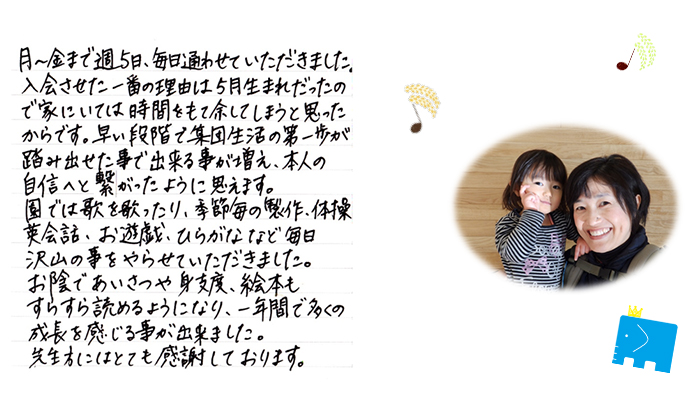 月～金まで週5日、毎日通わせていただきました。
入会させた一番の理由は5月生まれだったの
で家にいては時間をもて余してしまうと思った
からです。早い段階で集団生活の第一歩が
踏み出せた事で出来る事が増え、本人の
自信へと繋がったように思えます。
園では歌を歌ったり、季節毎の製作、体操
英会話、お遊戯、ひらがななど毎日
沢山の事をやらせていただきました。
お陰であいさつや身支度、絵本も
すらすら読めるようになり、一年間で多くの
成長を感じる事が出来ました。
先生方にはとても感謝しております。